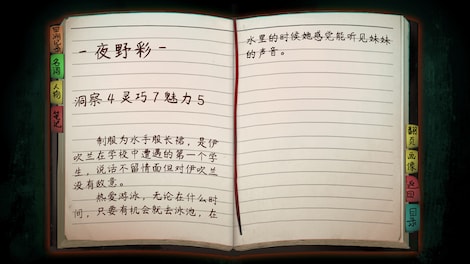 -夜野彩-
洞察4灵巧7魅力5
制服为水手服长裙，是伊
吹兰在学校中遭遇的第一个学
生，说话不留情面但对伊吹兰
没有敌意。
热爱游泳，无论在什么时
间，只要有机会就去泳池，在
水里的时候她感觉能听见妹妹
的声音。
名词
人物
笔记
画像
目录